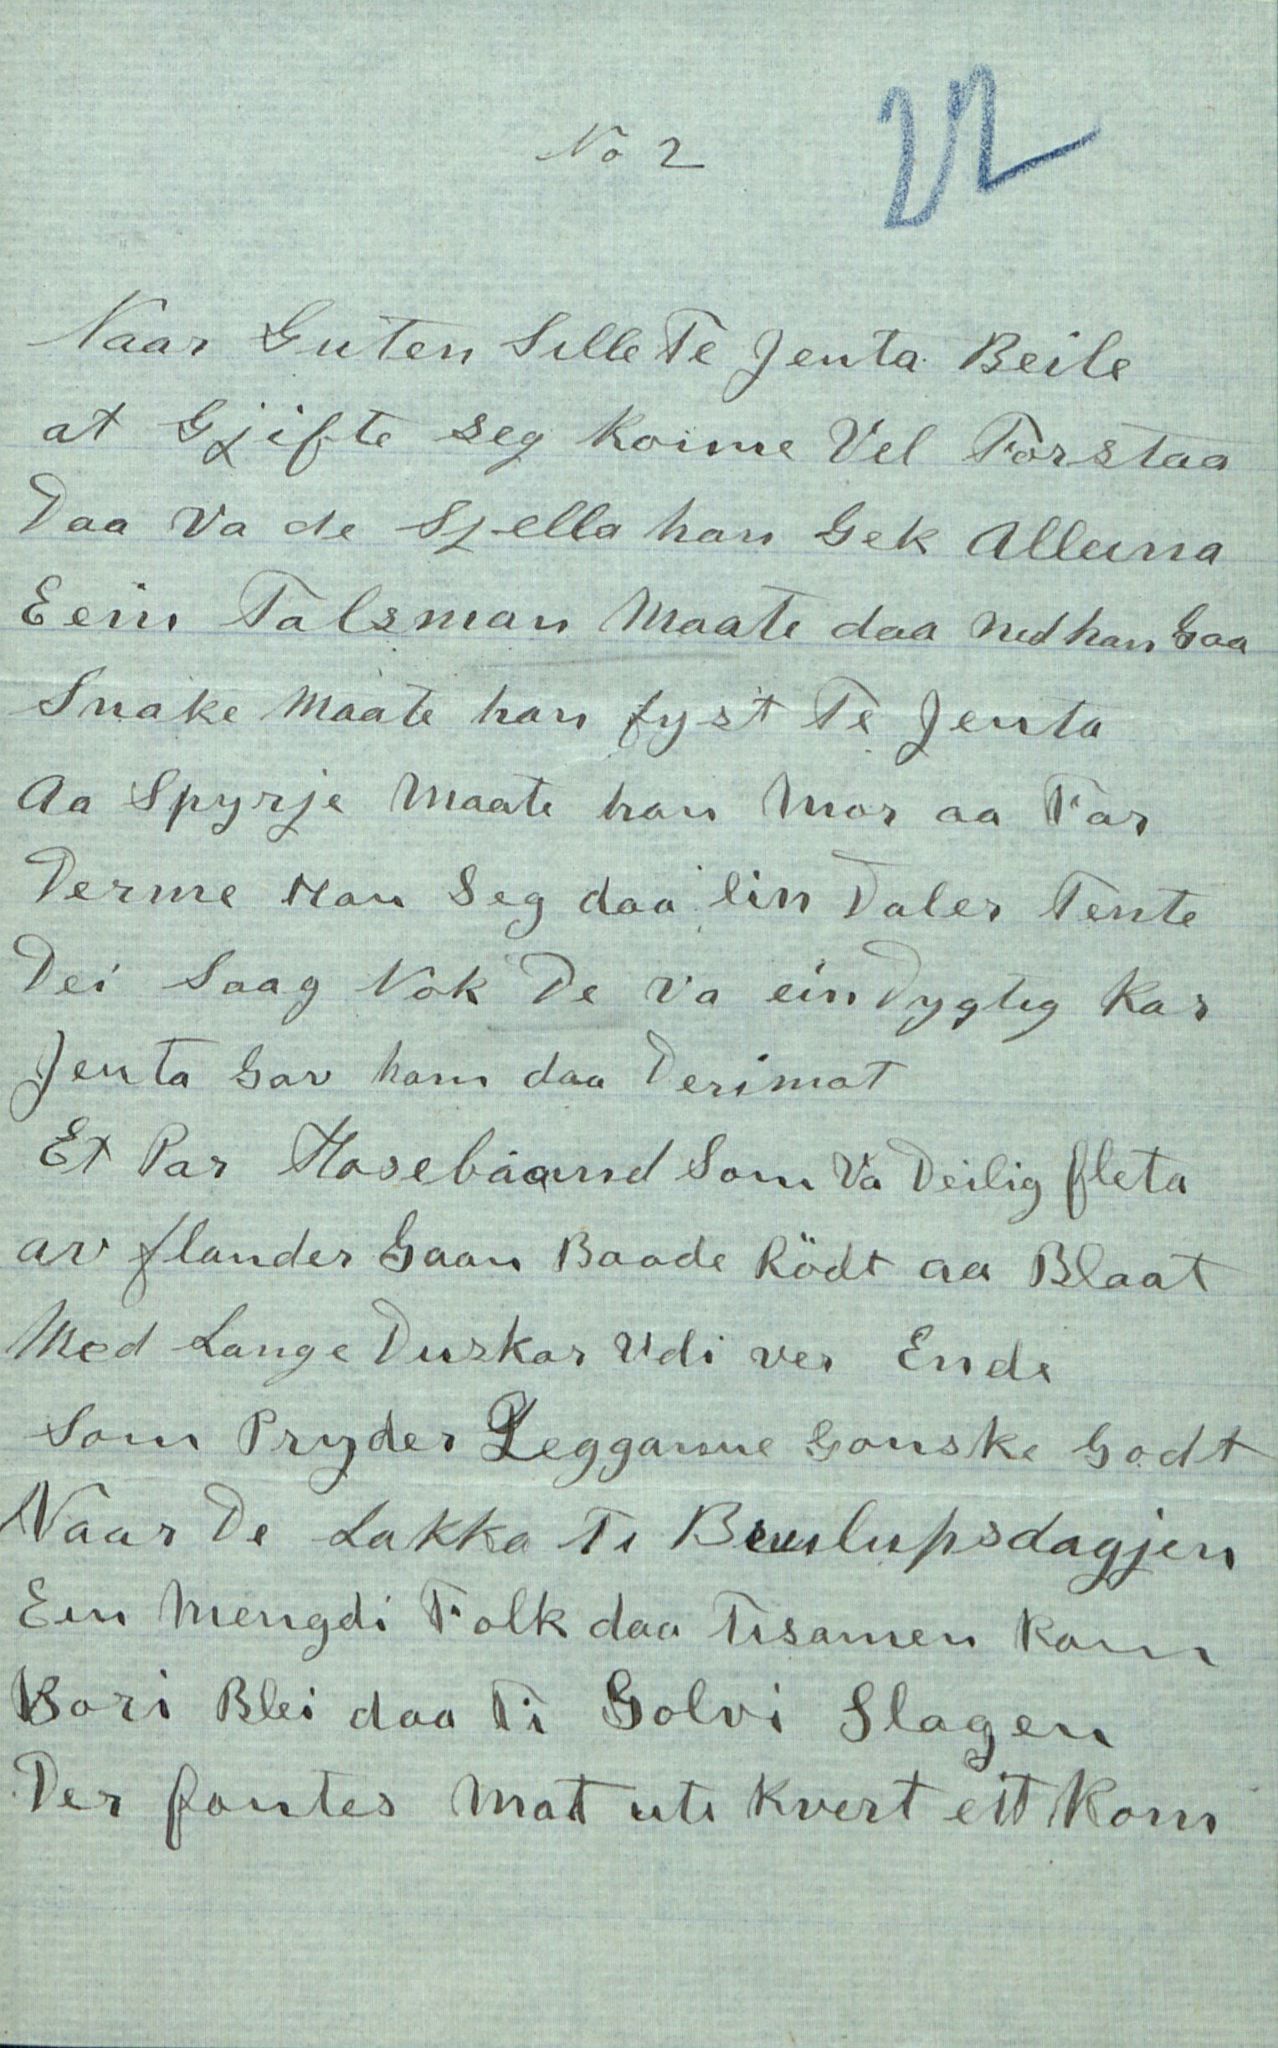 No 2
Naar Guten Sille Te Jenta Beile
at Gjifte seg Koime Vel Forstaa
Daa Va de Sjella han Gek Alleina
Eein Talsman Maate daa Med han Gaa
Snake Maate han fyst Te Jenta
Aa Spyrje Maate han Mor aa Far
Derme Han Seg daa Ein Daler Tente
Dei Saag Nok De Va ein Dygtig Kar
Jenta Gav ham daa Derimot
Et Par Hosebaand Som Va Deilig fleta
av flander Gaan Baade Rödt aa Blaat
Med Lange Duskar Udi ver Ende
Som Pryder Legganne Gonske Godt
Naar De Lakka Ti Brulupsdagjen
Ein Mengdi Folk daa Tisamen Kom
Bori Blei daa Ti Golvi Slagen
Der fantes Mat uti Kvert eitt Rom